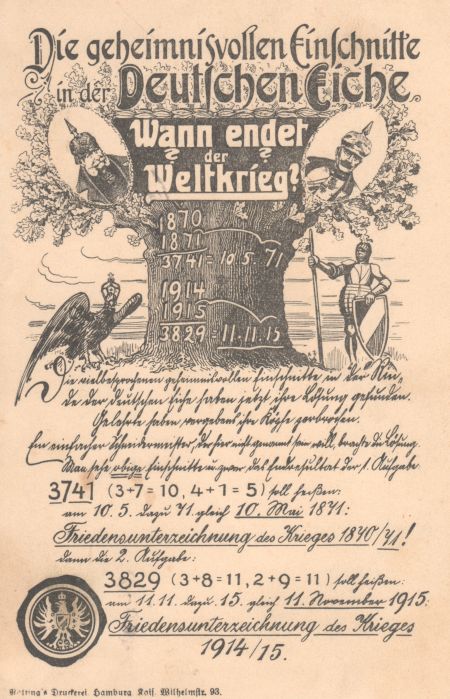 Die geheimnisvollen Einschnitte
in der Deutschen Eiche
Wann endet
? der ?
Weltkrieg?
1870
1871
3741 = 10. 5. 71
1914
1915
3829 = 11. 11. 15
Die vielbesprochenen geheimnisvollen Einschnitte in der Rin-
de der deutschen Eiche haben jetzt ihre Lösung gefunden.
Gelehrte haben vergebens ihre Köpfe zerbrochen.
Ein einfacher Schneidermeister, der hier nicht genannt sein will, brachte die Lösung.
Man sehe obige Einschnitte u. zwar das Endresultat der 1. Aufgabe
3741 (3+7=10, 4+1=5) soll heißen:
am 10. 5. dazu 71 gleich 10. Mai 1871:
Friedensunterzeichnung des Krieges 1870/71!
dann die 2. Aufgabe:
3829 (3+8=11, 2+9=11) soll heißen:
am 11. 11. dazu 15. gleich 11. November 1915:
Friedensunterzeichnung des Krieges
1914/15.
Druckerei Hamburg Kais. Wilhelmstr. 93.